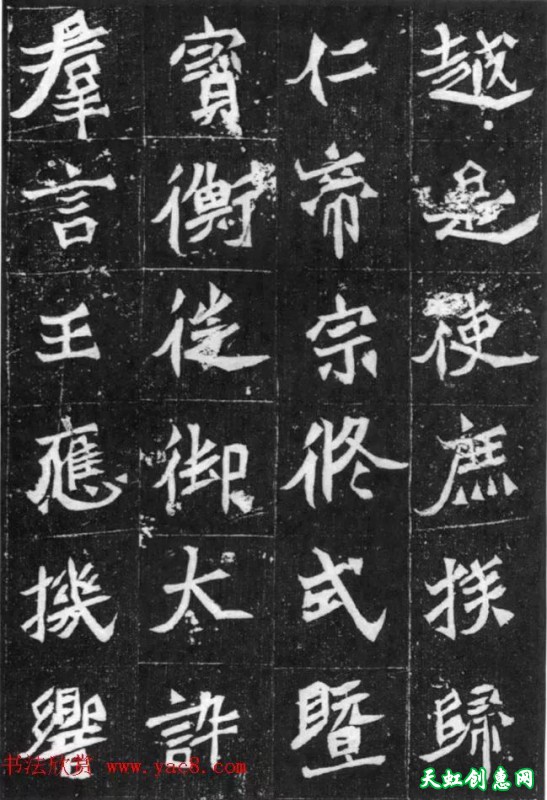 越是使庶族歸
仁帝宗攸式暨
寶衡徙御太訊
羣言王應機響
书法欣赏 www.yac8.com
天虹创惠网